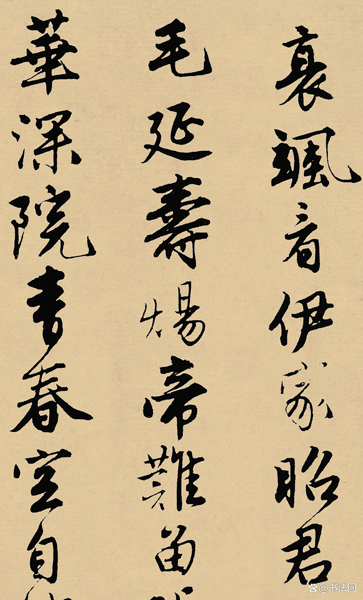 衰颯看伊家昭君
毛延壽煬帝難留
華深院青春空自
@书法网